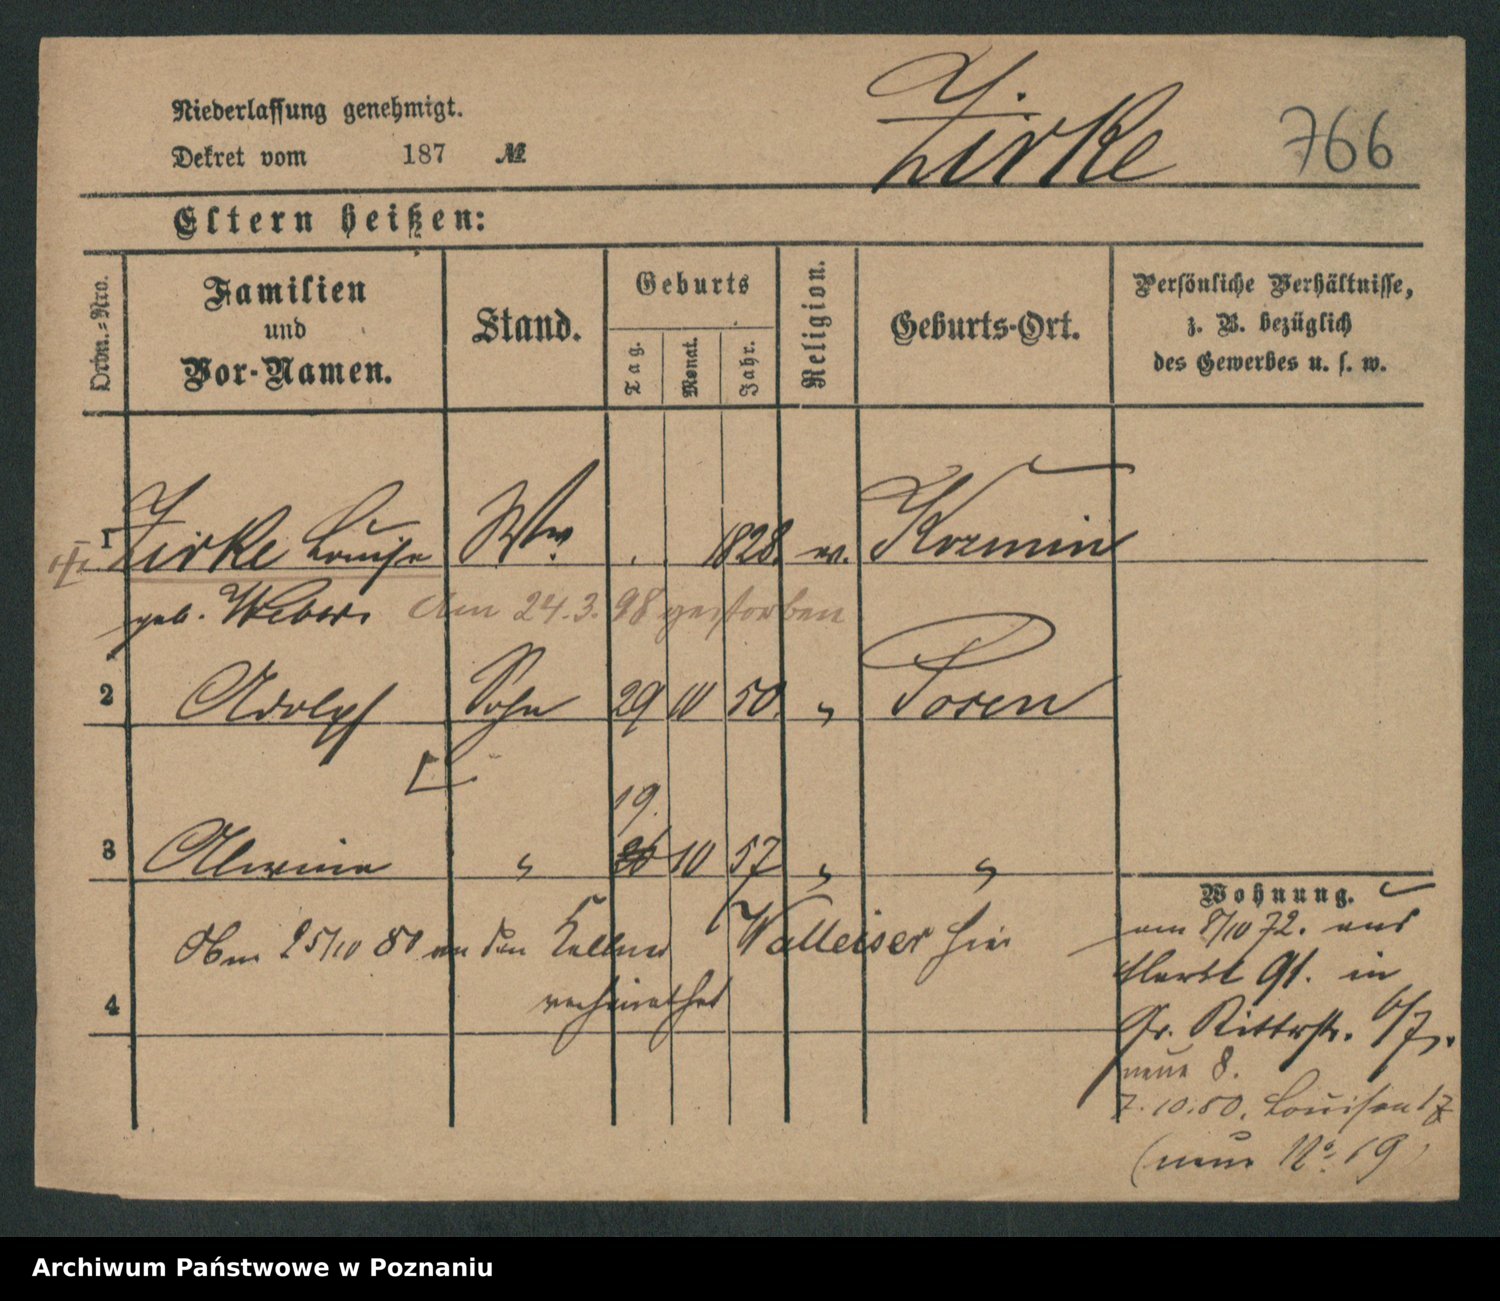 Niederlassung genehmigt.
Dekret vom 187 №
Zirke
766
Eltern heißen:
Ordn.-Nro.
Familien
und
Vor-Namen.
Stand.
Geburts
Tag.
Monat.
Jahr.
Religion.
Geburts-Ort.
Persönliche Verhältnisse,
z. B. bezüglich
des Gewerbes u. s. w.
1 Zirke Louise Ww. 1828. Kozmin
geb. Weber. Am 24.3.98 gestorben
2 Adolph Sohn 29 10 50. " Posen
19.
3 Alwine " 10 57 " "
Wohnung.
25/10 80 an den Kellner Walleiser hier
verheirathet
4
am 8/10 72. aus
Markt 91. in
Gr. Ritterstr. 6/7.
neue 8.
7.10.80. Louisen 17
(neue No. 19)
Archiwum Państwowe w Poznaniu